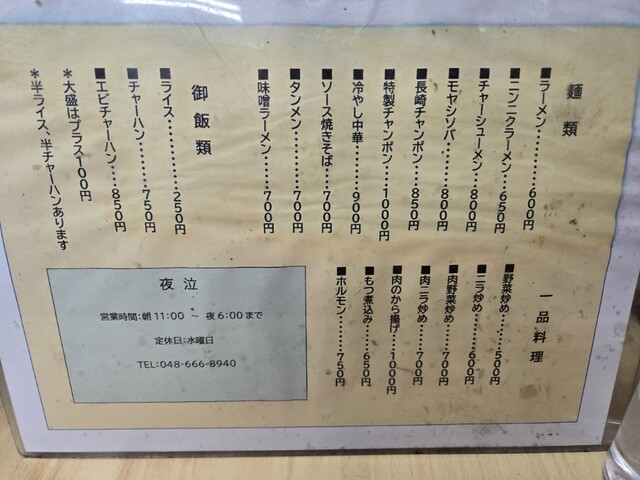 麺類
■ラーメン………600円
■ニンニクラーメン……650円
■チャーシューメン……800円
■モヤシソバ………800円
■長崎チャンポン……850円
■特製チャンポン……1000円
■冷やし中華………900円
■ソース焼きそば……700円
■タンメン………700円
■味噌ラーメン………700円
御飯類
■ライス…………250円
■チャーハン………750円
■エビチャーハン……850円
*大盛はプラス100円
*半ライス、半チャーハンあります
一品料理
■野菜炒め………500円
■ニラ炒め………600円
■肉野菜炒め………700円
■肉ニラ炒め………700円
■肉のから揚げ……1000円
■もつ煮込み………650円
■ホルモン………750円
夜泣
営業時間:朝11:00 ~ 夜6:00まで
定休日:水曜日
TEL:048-666-8940